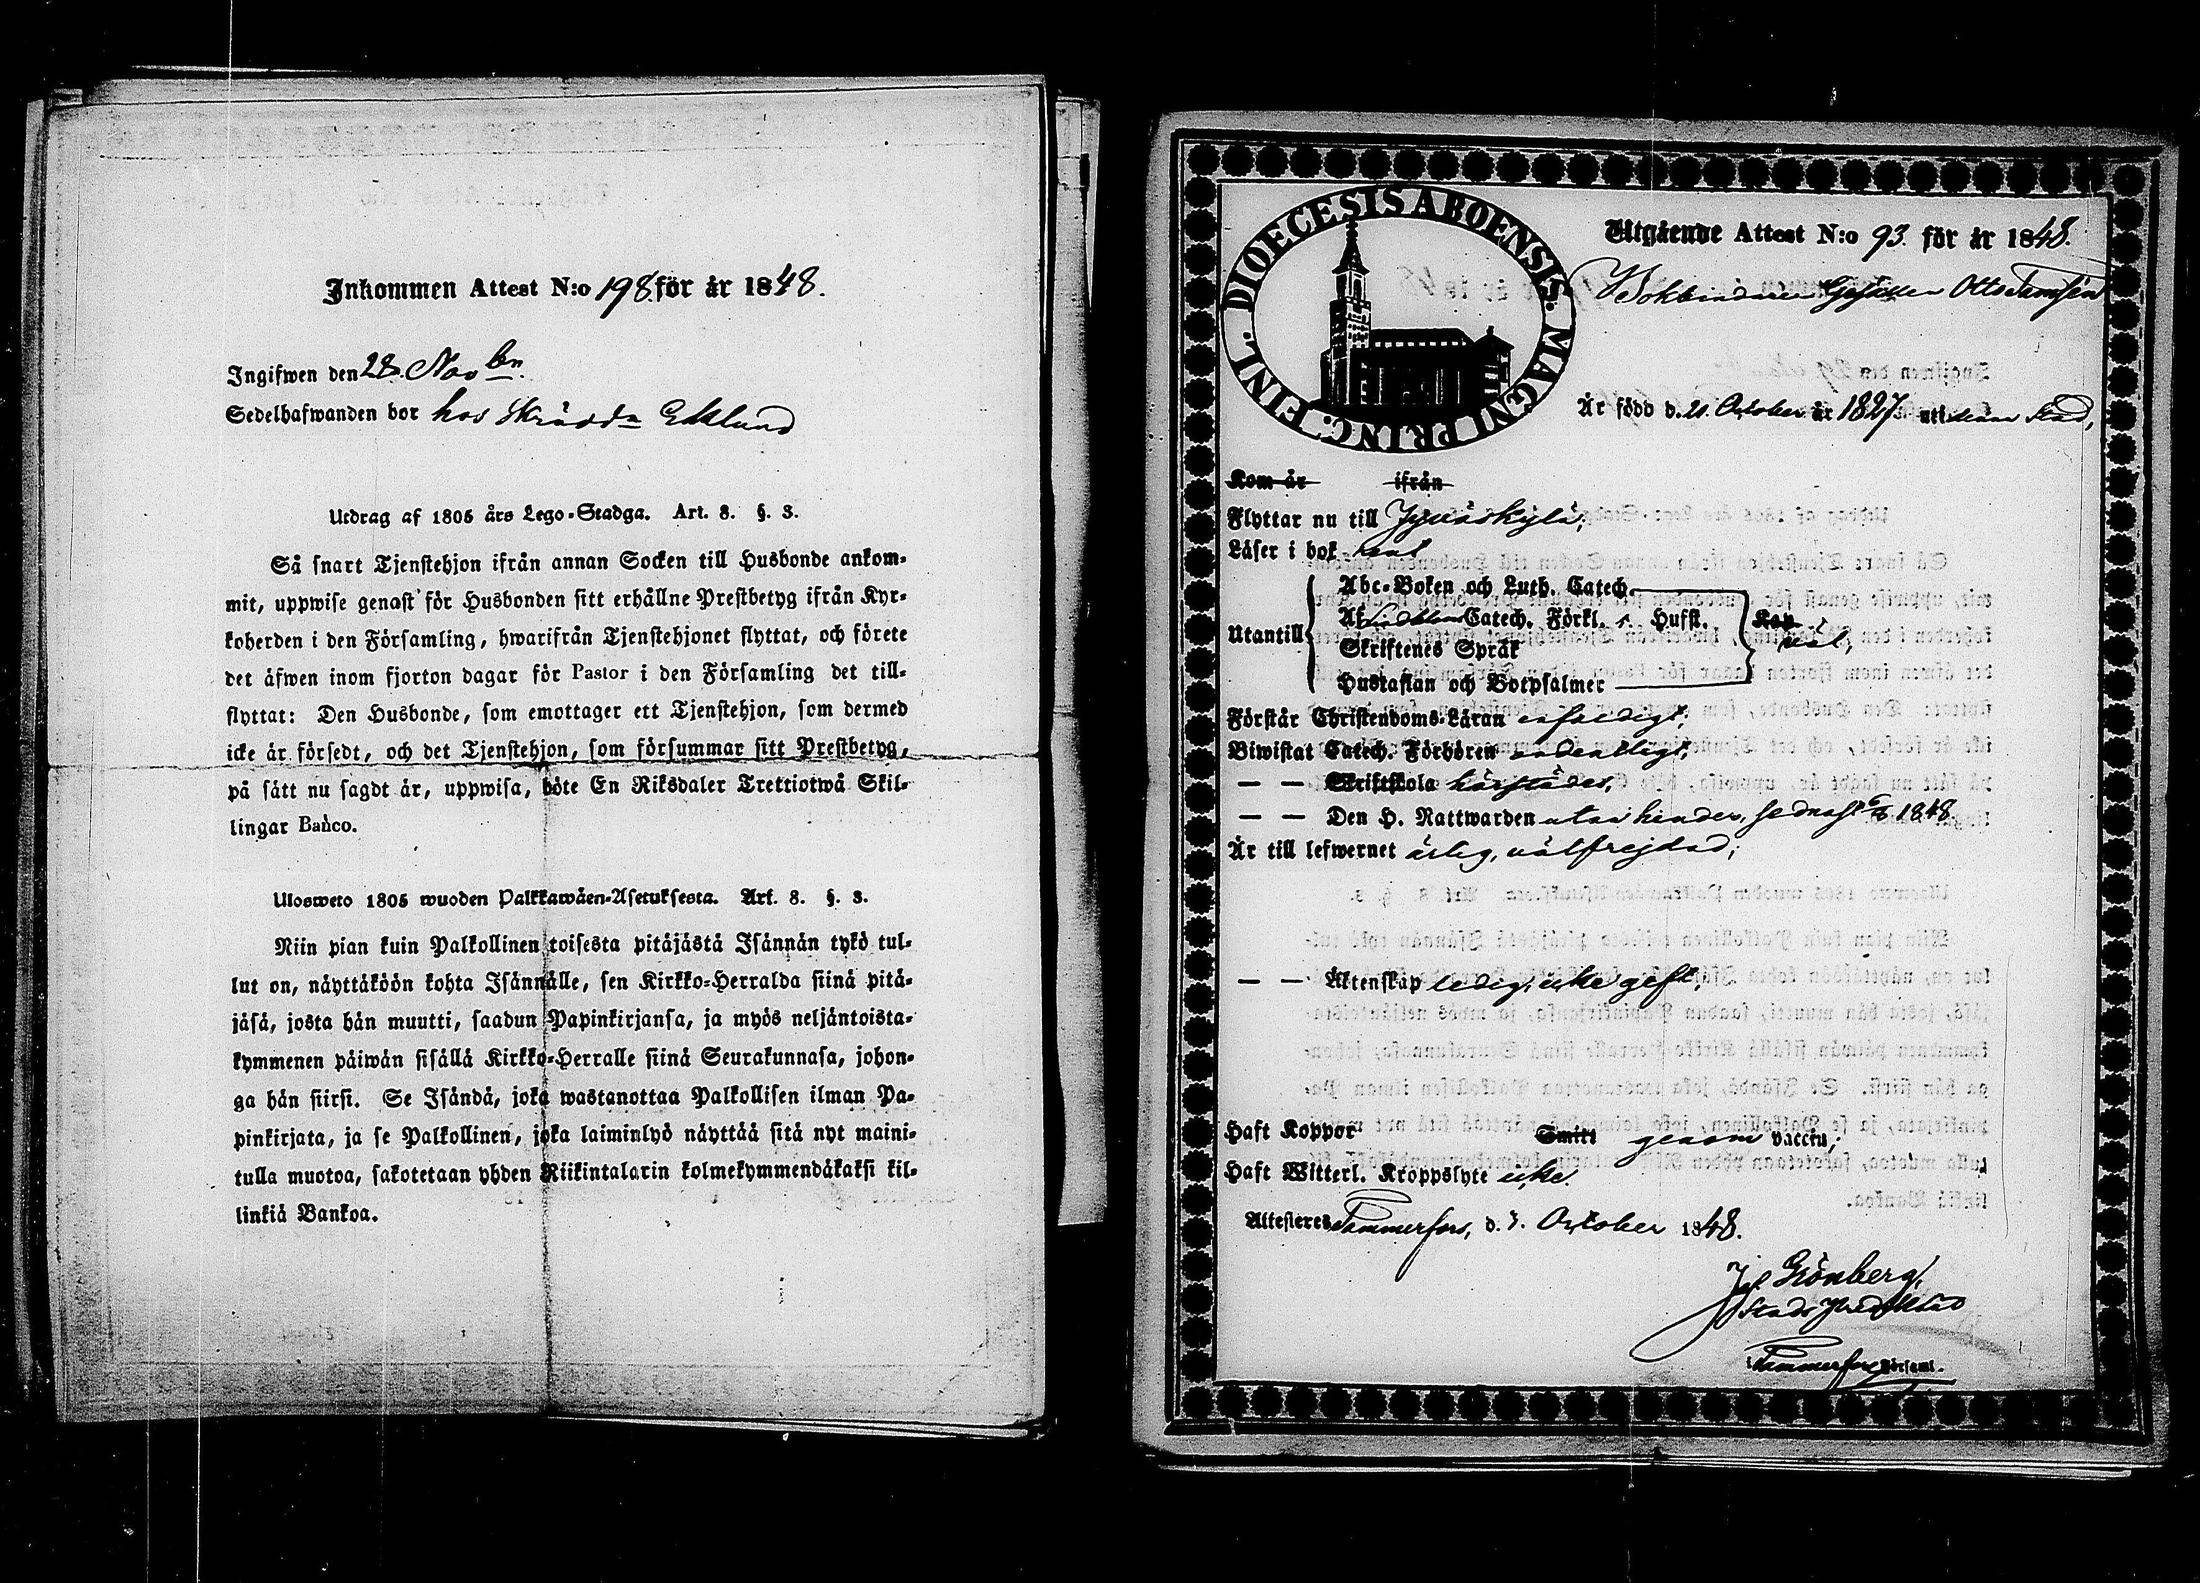 Inkommen Attest N:o 198. för år 1848.
Ingifwen den 28. Novbr.
Sedelhafwanden bor hos Skrädd. Eklund
Utdrag af 1805 års Lego-Stadga. Art. 8. §. 3.
Så snart Tjenstehjon ifrån annan Socken till Husbonde ankom-
mit, uppwise genast för Husbonden sitt erhållne Prestbetyg ifrån Kyr-
koherden i den Församling, hwarifrån Tjenstehjonet flyttat, och förete
det äfwen inom fjorton dagar för Pastor i den Församling det till-
flyttat: Den Husbonde, som emottager ett Tjenstehjon, som dermed
icke är försedt, och det Tjenstehjon, som försummar sitt Prestbetyg,
på sätt nu sagdt är, uppwisa, böte En Riksdaler Trettiotwå Skil-
lingar Banco.
Ulosweto 1805 wuoden Palkkawäen-Asetuksesta. Art. 8. §. 3.
Niin pian kuin Palkollinen toisesta pitäjästä Isännän tykö tul-
lut on, näyttäköön kohta Isännälle, sen Kirkko-Herralda siinä pitä-
jäsä, josta hän muutti, saadun Papinkirjansa, ja myös neljäntoista-
kymmenen päiwän sisällä Kirkko-Herralle siinä Seurakunnasa, johon-
ga hän siirsi. Se Isändä, joka wastanottaa Palkollisen ilman Pa-
pinkirjata, ja se Palkollinen, joka laiminlyö näyttää sitä nyt maini-
tulla muotoa, sakotetaan yhden Riikintalarin kolmekymmendäkaksi kil-
linkiä Bankoa.
DIOECESIS ABOENSIS. MAGNI PRINC. FINL.
Utgående Attest N:o 93. för år 1848.
Bokbindare Gesällen Otto Tamsén
Är född d. 21 October år 1827. uti denna Stad,
Kom år ifrån
Flyttar nu till Jyväskylä;
Läser i bok
Abc-Boken och Luth. Catech.
Utantill Af Catech. Förkl. Hufst. Kap
Skriftenes Språk väl;
Hustaflan och Botpsalmer
Förstår Christendoms-Läran
Biwistat Catech. Förhören ordentligt;
— — Skriftskola härstädes,
— — Den H. Nattwarden utan hinder, sednast 1848
Är till lefwernet ärlig, välfrejdad;
— — Äktenskap ledig, icke gift;
Haft Koppor Smitt genom vaccin;
Haft Witterl. Kroppslyte icke.
Attesteres Tammerfors, d. 3. October 1848.
Grönberg,
i Tammerfors Församl.